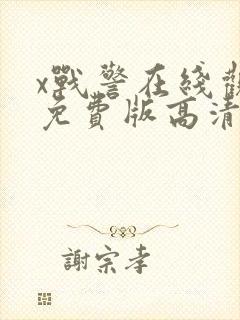 x戰警在綫觀
免費版高清
謝宗孝